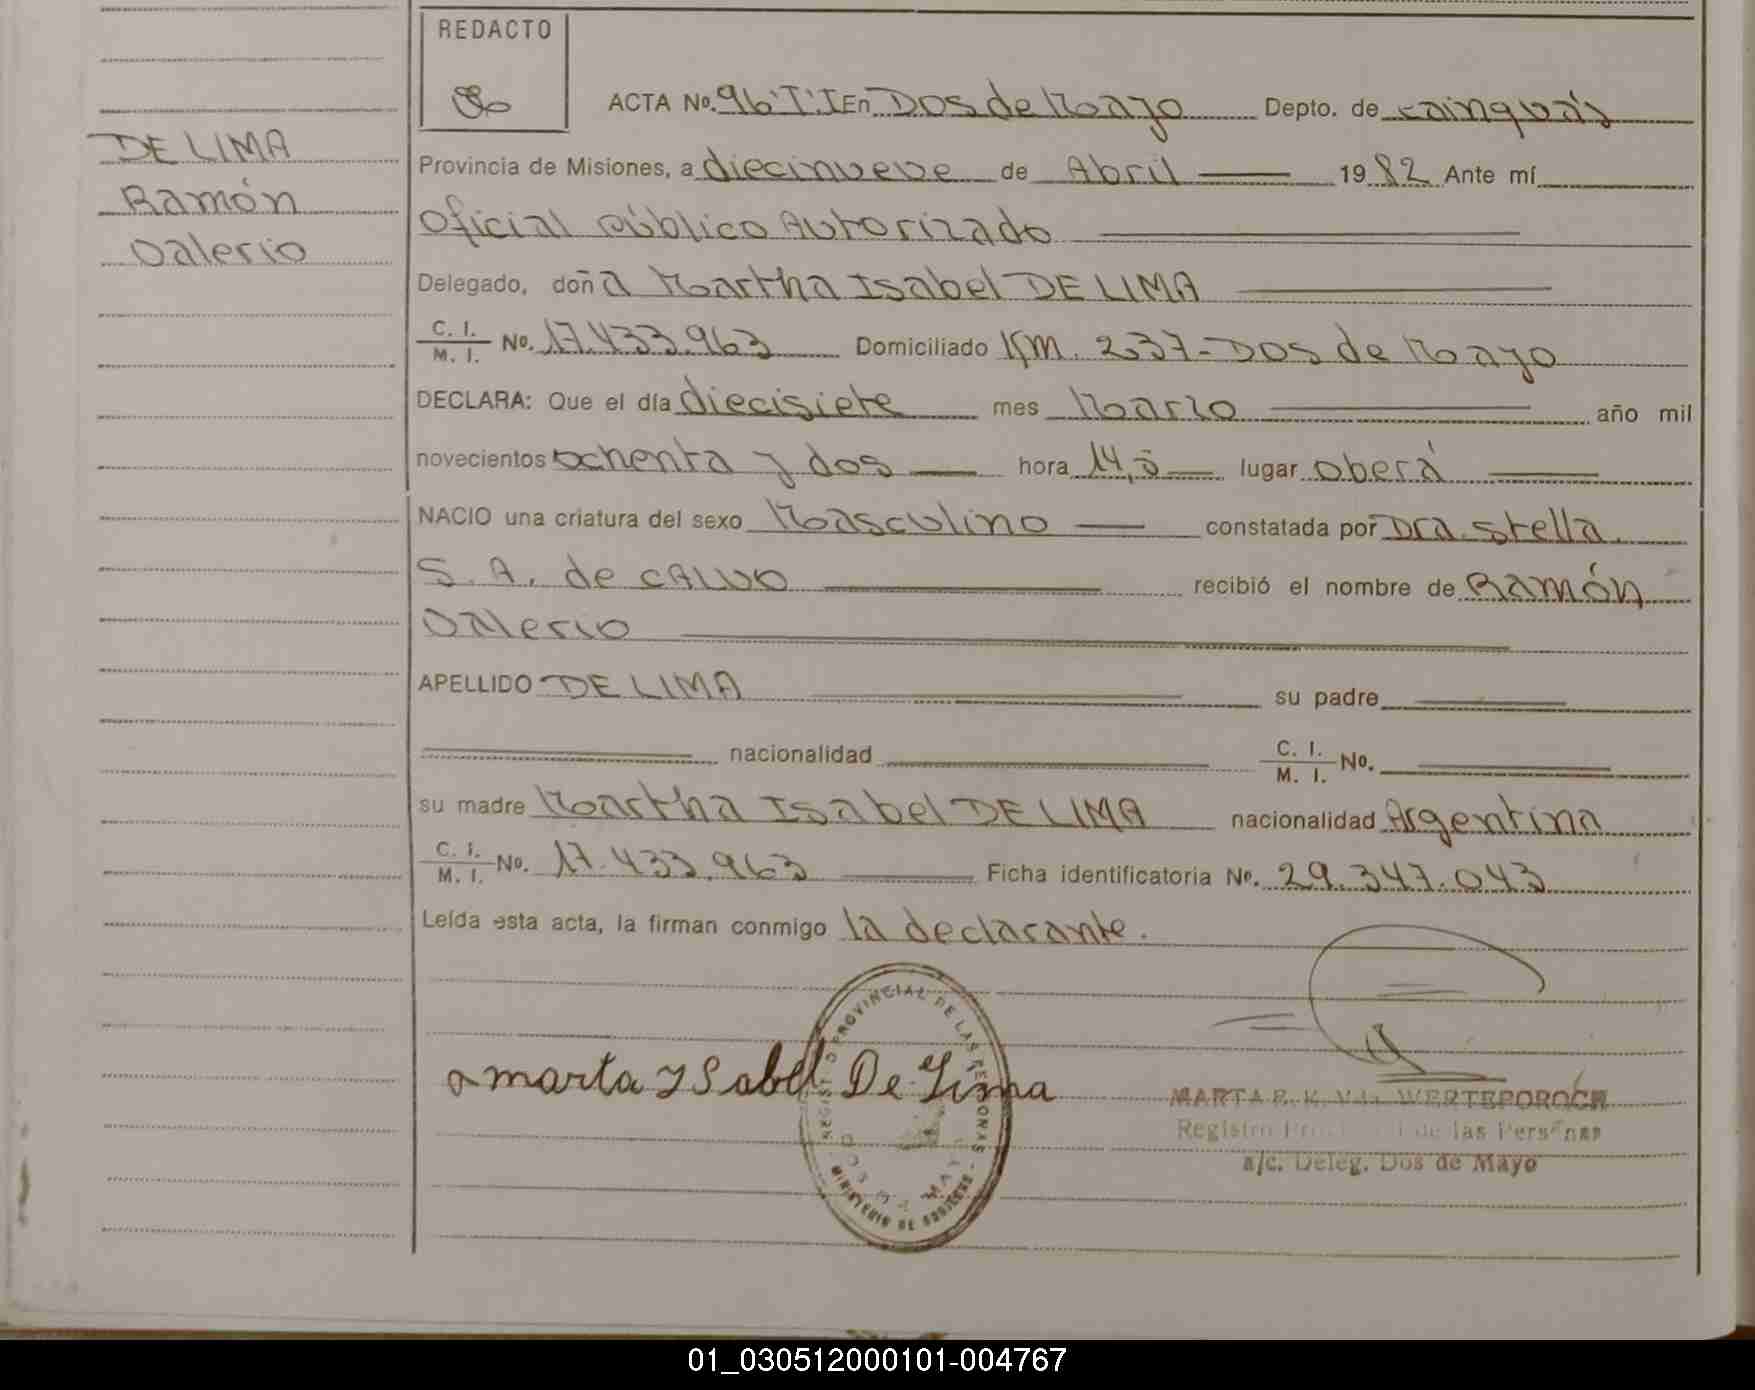 REDACTO
ACTA No. 96 T°I En Dos de Mayo Depto. de Cainguás
DE LIMA
Ramón
Valerio
Provincia de Misiones, a diecinueve de Abril 1982 Ante mí
Oficial Público Autorizado
Delegado, doña Martha Isabel DE LIMA
C. I.
M. I. No. 17.433.963 Domiciliado Km. 237-Dos de Mayo
DECLARA: Que el día diecisiete mes Marzo año mil
novecientos ochenta y dos hora 14,5 lugar oberá
NACIO una criatura del sexo Masculino constatada por Dra. Stella
S. A. de CALVO recibió el nombre de Ramón
Valerio
APELLIDO DE LIMA su padre
nacionalidad C. I.
M. I. No.
su madre Martha Isabel DE LIMA nacionalidad Argentina
C. I.
M. I. No. 17.433.963 Ficha identificatoria No. 29.347.043
Leída esta acta, la firman conmigo la declarante.
marta Ysabel De Lima
REGISTRO PROVINCIAL DE LAS PERSONAS
DOS DE MAYO
MINISTERIO DE GOBIERNO
MARTA R. K. Vda. WERTEPOROCH
Registro Provincial de las Personas
a/c. Deleg. Dos de Mayo
01_030512000101-004767